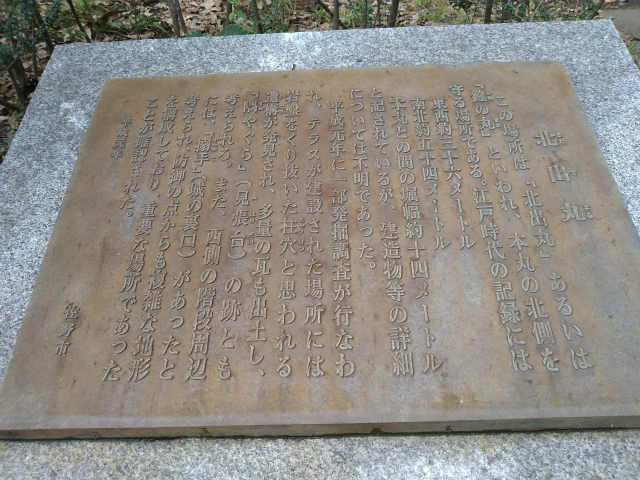 北出丸
この場所は、「北出丸」あるいは
の丸」といわれ、本丸の北側を
守る場所である。江戸時代の記録には
東西約三十六メートル
南北約五十四メートル
本丸との間の堀幅約十四メートル
と記されているが、建造物等の詳細
については不明であった。
平成元年に一部発掘調査が行なわ
れ、テラスが建設された場所には
岩盤をくり抜いた柱穴と思われる
遺構が発見され、多量の瓦も出土し、
やぐら」(見張台)の跡とも
考えられる。また、西側の階段周辺
には「搦手」(城の裏口)があったと
考えられ、防御の点からも複雑な地形
を構成しており、重要な場所であった
ことが確認された。
平成
佐野市